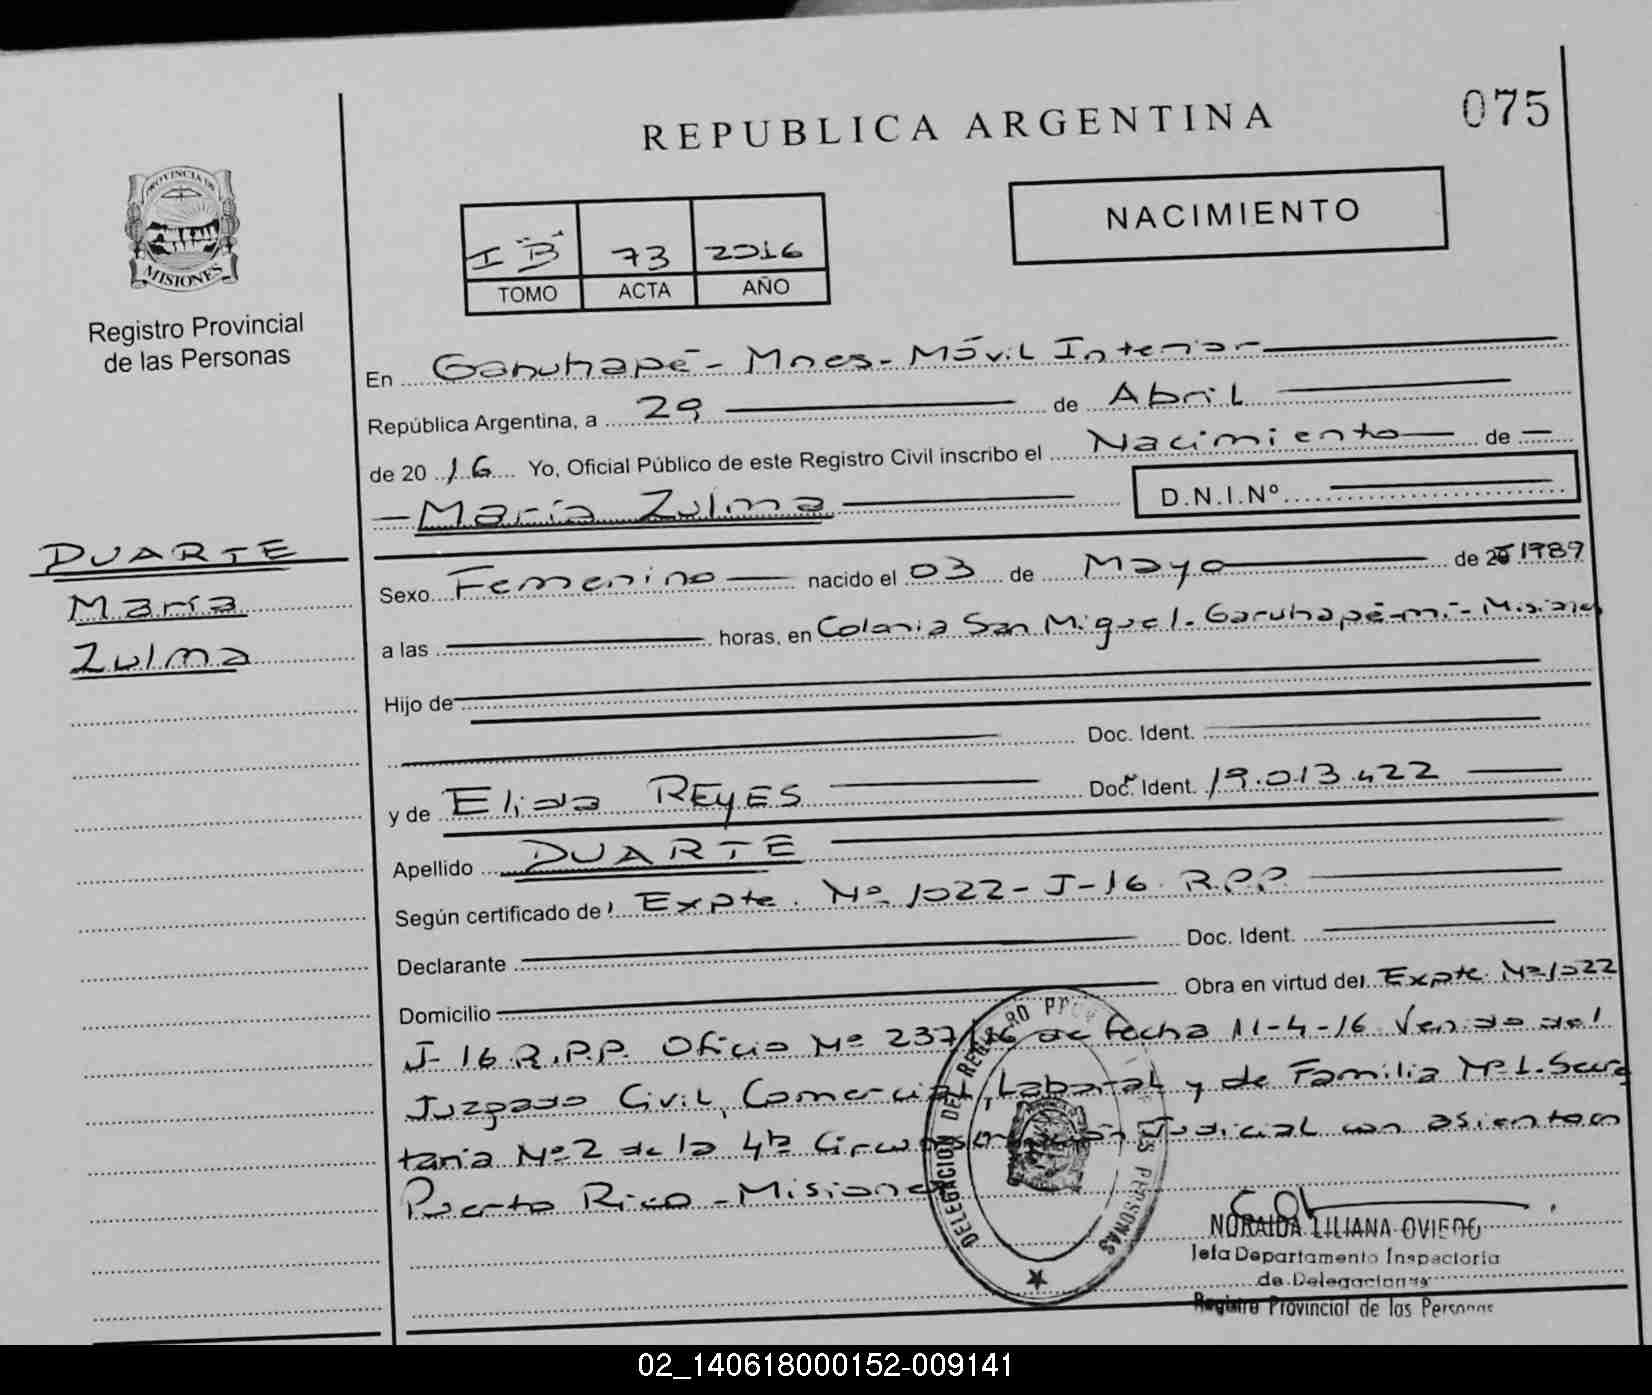 REPUBLICA ARGENTINA
075
PROVINCIA DE
MISIONES
Registro Provincial
de las Personas
NACIMIENTO
I "B" 73 2016
TOMO ACTA AÑO
En Garuhapé - Mnes - Móvil Interior
República Argentina, a 29 de Abril
de 20 16 Yo, Oficial Público de este Registro Civil inscribo el Nacimiento de
María Zulma D.N.I.Nº
DUARTE
María
Zulma
Sexo Femenino nacido el 03 de Mayo de 1989
a las horas, en Colonia San Miguel - Garuhapé-mí - Misiones
Hijo de
Doc. Ident.
y de Elida REYES Doc. Ident. 19.013.422
Apellido DUARTE
Según certificado del Expte. Nº 1022-J-16 R.P.P
Declarante Doc. Ident.
Domicilio Obra en virtud del Expte. Nº 1022
J-16 R.P.P. Oficio Nº 237/16 de fecha 11-4-16 Venido del
Juzgado Civil, Comercial, Laboral y de Familia Nº 1 - Secre
taria Nº 2 de la 4ta Circunscripción Judicial con asiento en
Puerto Rico - Misiones
DELEGACION DEL REGISTRO PROV. DE LAS PERSONAS
NORAIDA LILIANA OVIEDO
Jefa Departamento Inspectoria
de Delegaciones
Registro Provincial de las Personas
02_140618000152-009141